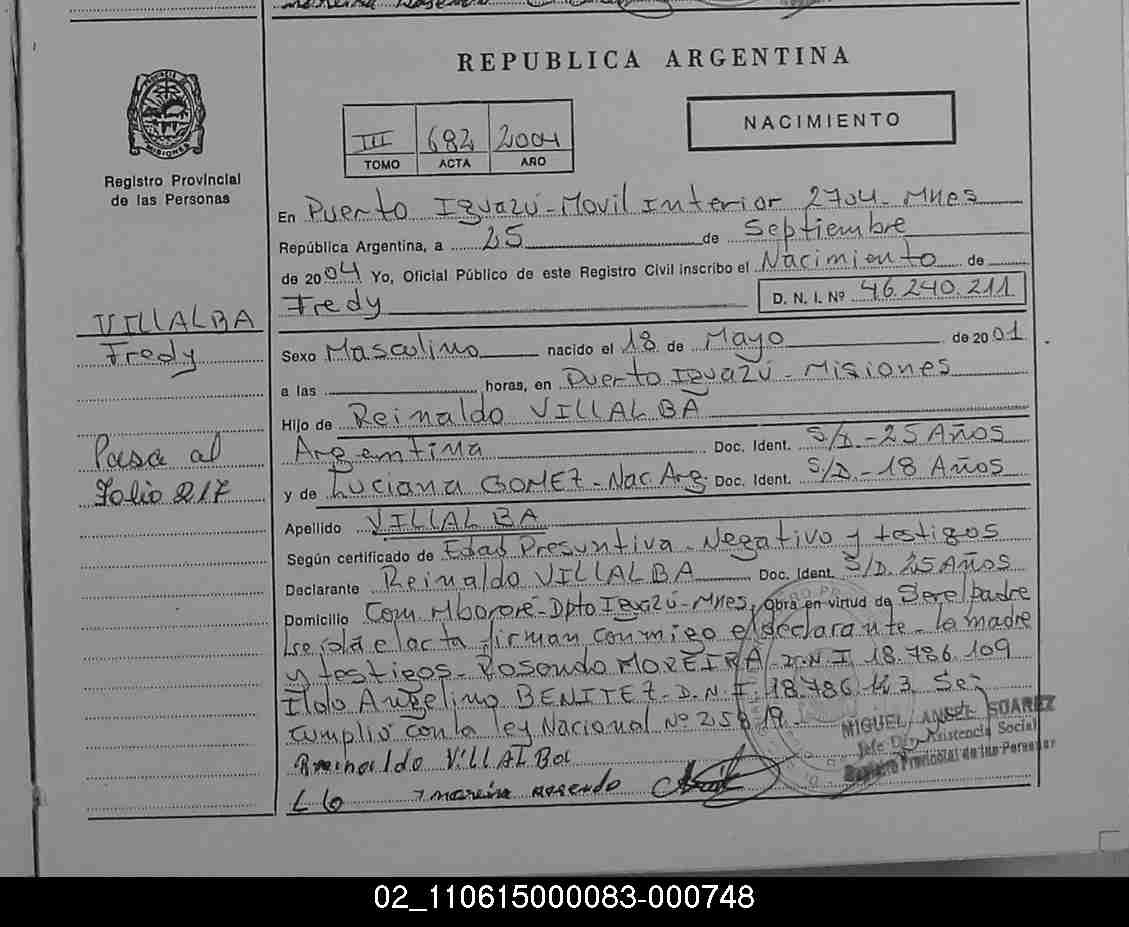 REPUBLICA ARGENTINA
NACIMIENTO
III 682 2004
TOMO ACTA AÑO
Registro Provincial
de las Personas
PROVINCIA DE MISIONES
En Puerto Iguazú - Movil Interior 2704 - Mnes
República Argentina, a 25 de Septiembre
de 2004 Yo, Oficial Público de este Registro Civil inscribo el Nacimiento de
Fredy D. N. I. Nº 46.240.211
VILLALBA
Fredy
Sexo Masculino nacido el 18 de Mayo de 2001
a las horas, en Puerto Iguazú - Misiones
Hijo de Reinaldo VILLALBA
Argentina Doc. Ident. S/D - 25 Años
Pasa al
folio 217
y de Luciana GOMEZ - Nac. Arg. Doc. Ident. S/D - 18 Años
Apellido VILLALBA
Según certificado de Edad Presuntiva - Negativo y testigos
Declarante Reinaldo VILLALBA Doc. Ident. S/D. 25 Años
Domicilio Com. Mbororé - Dpto Iguazú - Mnes, Obra en virtud de Ser el padre
leída el acta firman conmigo el declarante - la madre
y testigos - Rosendo MOREIRA D.N.I. 18.786.109
Italo Angelino BENITEZ - D.N.I. 18.786.113 Se
cumplió con la ley Nacional Nº 25819
Reinaldo VillALBa
LG moreira rosendo
MIGUEL ANGEL SUAREZ
Jefe Dpto Asistencia Social
Registro Provincial de las Personas
02_110615000083-000748